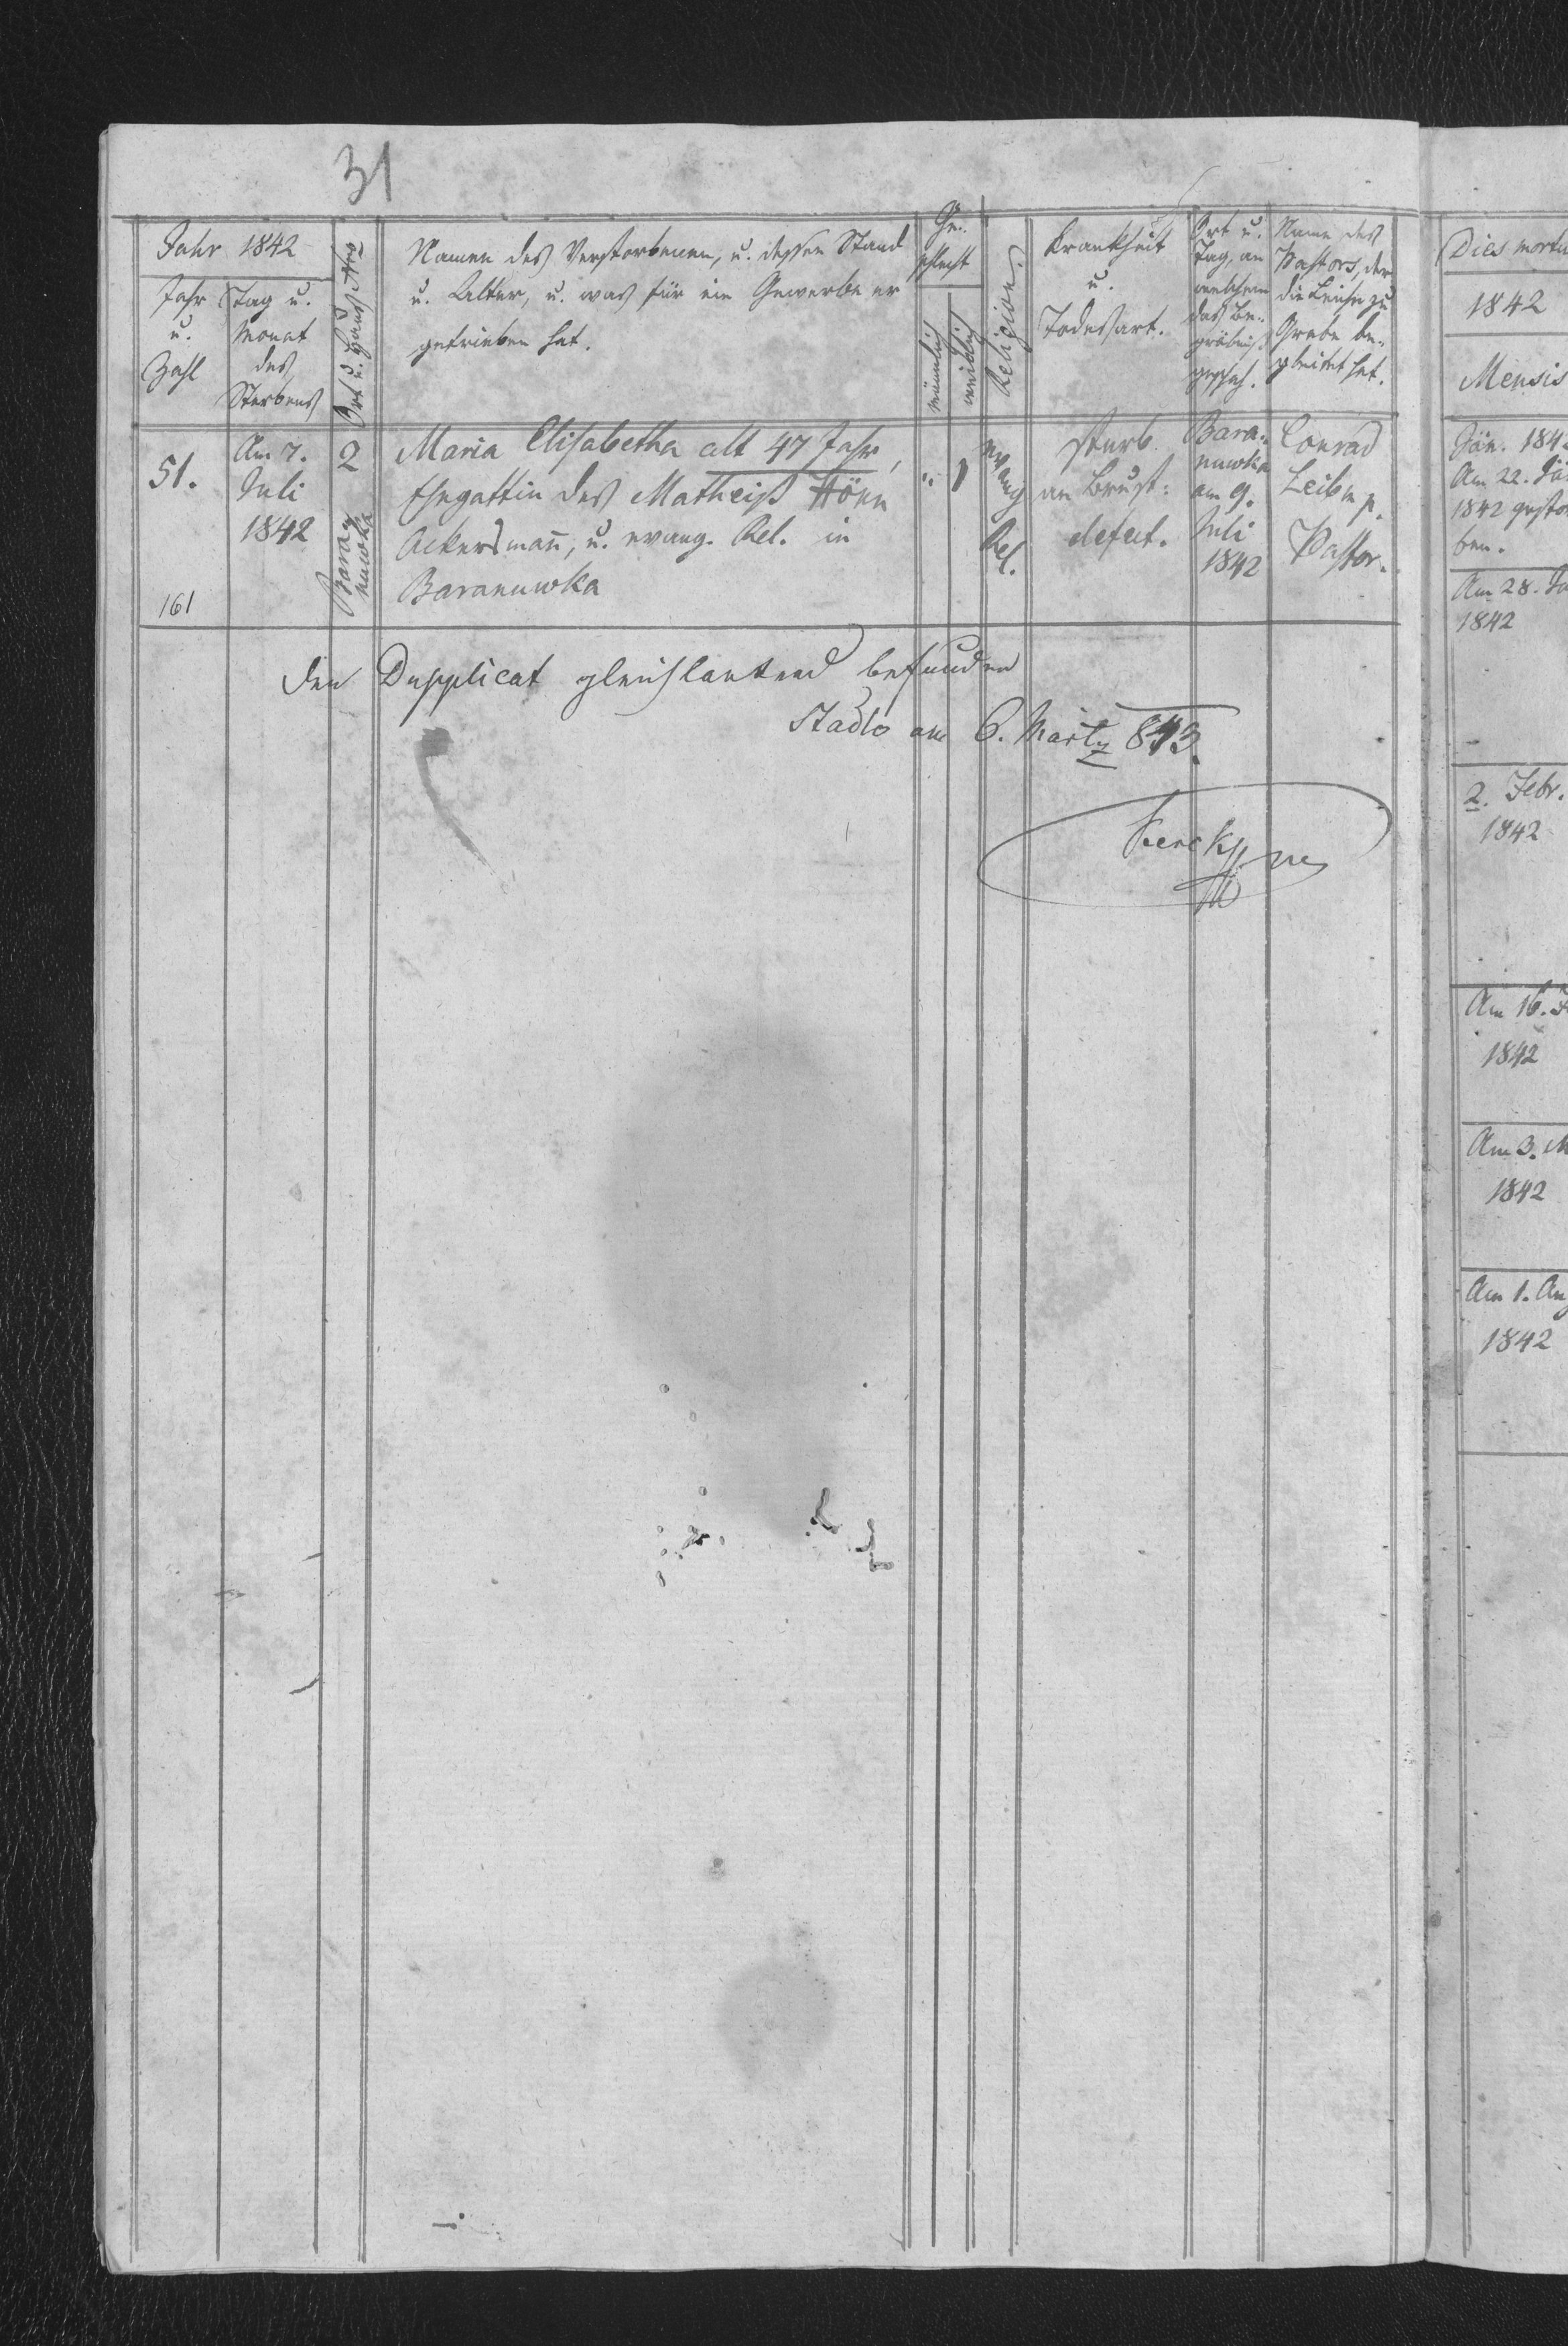 31
Jahr 1842
Jahr
u.
Zahl
Tag u.
Monat
des
Sterbens
Ort u. Haus Nro
Namen des Verstorbenen, u. dessen Stand
u. Alter, u. was für ein Gewerbe er
getrieben hat.
Ge-
schlecht
männlich
weiblich
Religion
Krankheit
u.
Todesart.
Ort u.
Tag, an
welchem
das Be-
gräbniß
geschah.
Name des
Pastors, der
die Leiche zu
Grabe be-
gleitet hat.
51.
161
Am 7.
Juli
1842
2
Baranuwka
Maria Elisabetha alt 47 Jahr,
Ehegattin des Matheiß Hönn
Ackersmañ, u. evang. Rel. in
Baranuwka
"
1
evang
Rel.
Starb
an Brust-
defect.
Bara-
nuwka
am 9.
Juli
1842
Conrad
Leib
Pastor.
Den Dupplicat gleichlautend befunden
Stadlo am 6. Martz 843.
Dies mortu
1842
Mensis
Jän. 184
Am 22. Jä
1842 gestor
ben.
Am 28. Ja
1842
2. Febr.
1842
Am 16. F
1842
Am 3. M
1842
Am 1. Aug
1842